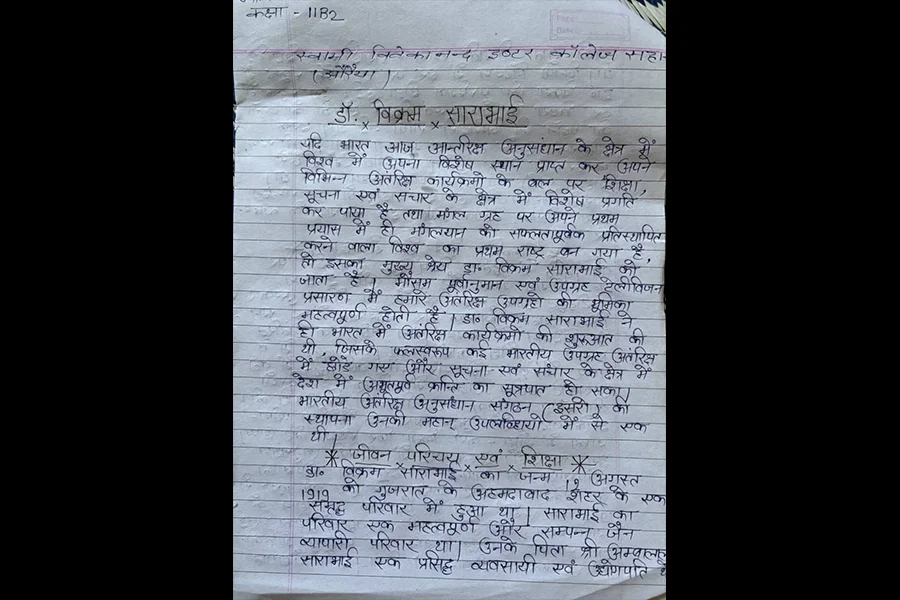 कक्षा - 11B2
स्वामी विवेकानन्द इण्टर कॉलेज सहा
(औरैया)
डॉ. विक्रम साराभाई
यदि भारत आज आन्तरिक्ष अनुसंधान के क्षेत्र में
विश्व में अपना विशेष स्थान प्राप्त कर अपने
विभिन्न अंतरिक्ष कार्यक्रमों के बल पर शिक्षा,
सूचना एवं संचार के क्षेत्र में विशेष प्रगति
कर पाया है तथा मंगल ग्रह पर अपने प्रथम
प्रयास में ही मंगलयान को सफलतापूर्वक प्रतिस्थापित
करने वाला विश्व का प्रथम राष्ट्र बन गया है,
तो इसका मुख्य श्रेय डा० विक्रम साराभाई को
जाता है। मौसम पूर्वानुमान एवं उपग्रह टेलीविजन
प्रसारण में हमारे अंतरिक्ष उपग्रहों की भूमिका
महत्वपूर्ण होती है। डा० विक्रम साराभाई ने
ही भारत में अंतरिक्ष कार्यक्रमों की शुरूआत की
थी, जिसके फलस्वरूप कई भारतीय उपग्रह अंतरिक्ष
में छोड़े गए और सूचना एवं संचार के क्षेत्र में
देश में अभूतपूर्व क्रान्ति का सूत्रपात हो सका।
भारतीय अंतरिक्ष अनुसंधान संगठन (इसरो) की
स्थापना उनकी महान् उपलब्धियों में से एक
थी।
जीवन परिचय एवं शिक्षा
डा० विक्रम साराभाई का जन्म 12 अगस्त
1919 को गुजरात के अहमदाबाद शहर के एक
समृद्ध परिवार में हुआ था। साराभाई का
परिवार एक महत्वपूर्ण और सम्पन्न जैन
व्यापारी परिवार था। उनके पिता श्री अम्बालाल
साराभाई एक प्रसिद्ध व्यवसायी एवं उद्योगपति थे